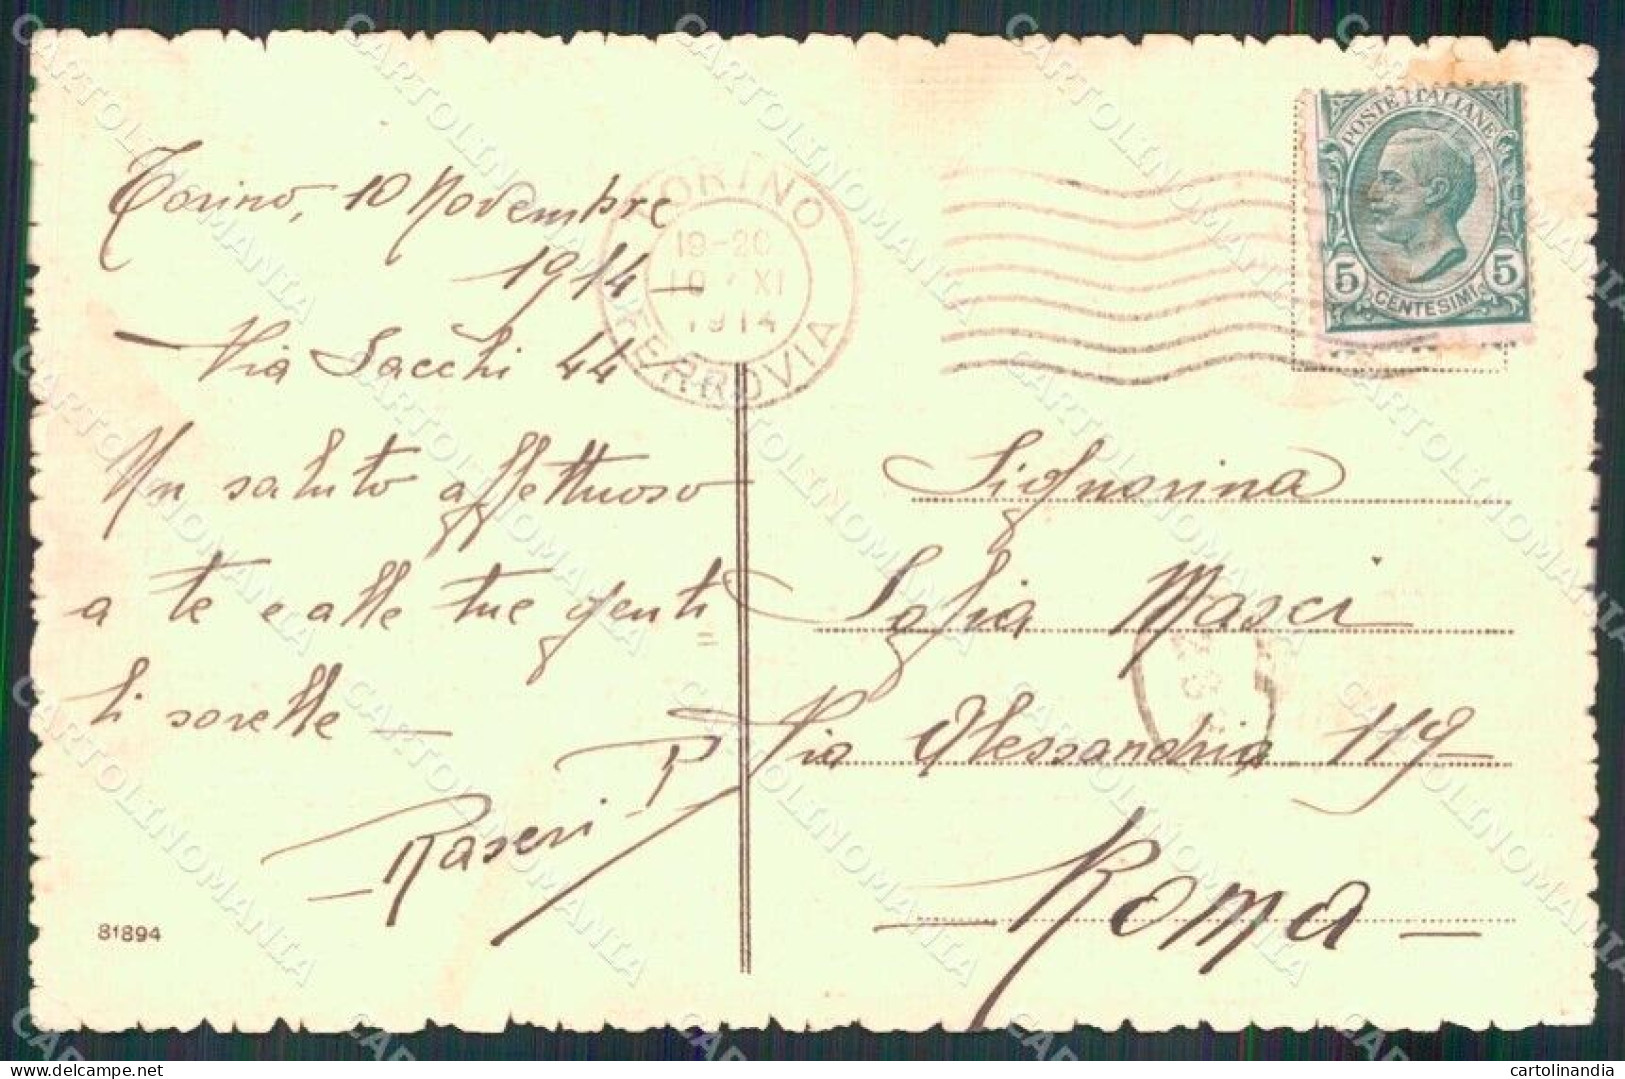 Torino, 10 Novembre
1914 —
Via Sacchi 44
Un saluto affettuoso
a te e alle tue genti
li sorelle —
Raseri
81894
TORINO
19-20
10 XI
1914
FERROVIA
POSTE ITALIANE
5 CENTESIMI 5
Signorina
Sofia Masci
Via Alessandria 119
Roma
CARTOLINOMANIA
cartolinandia